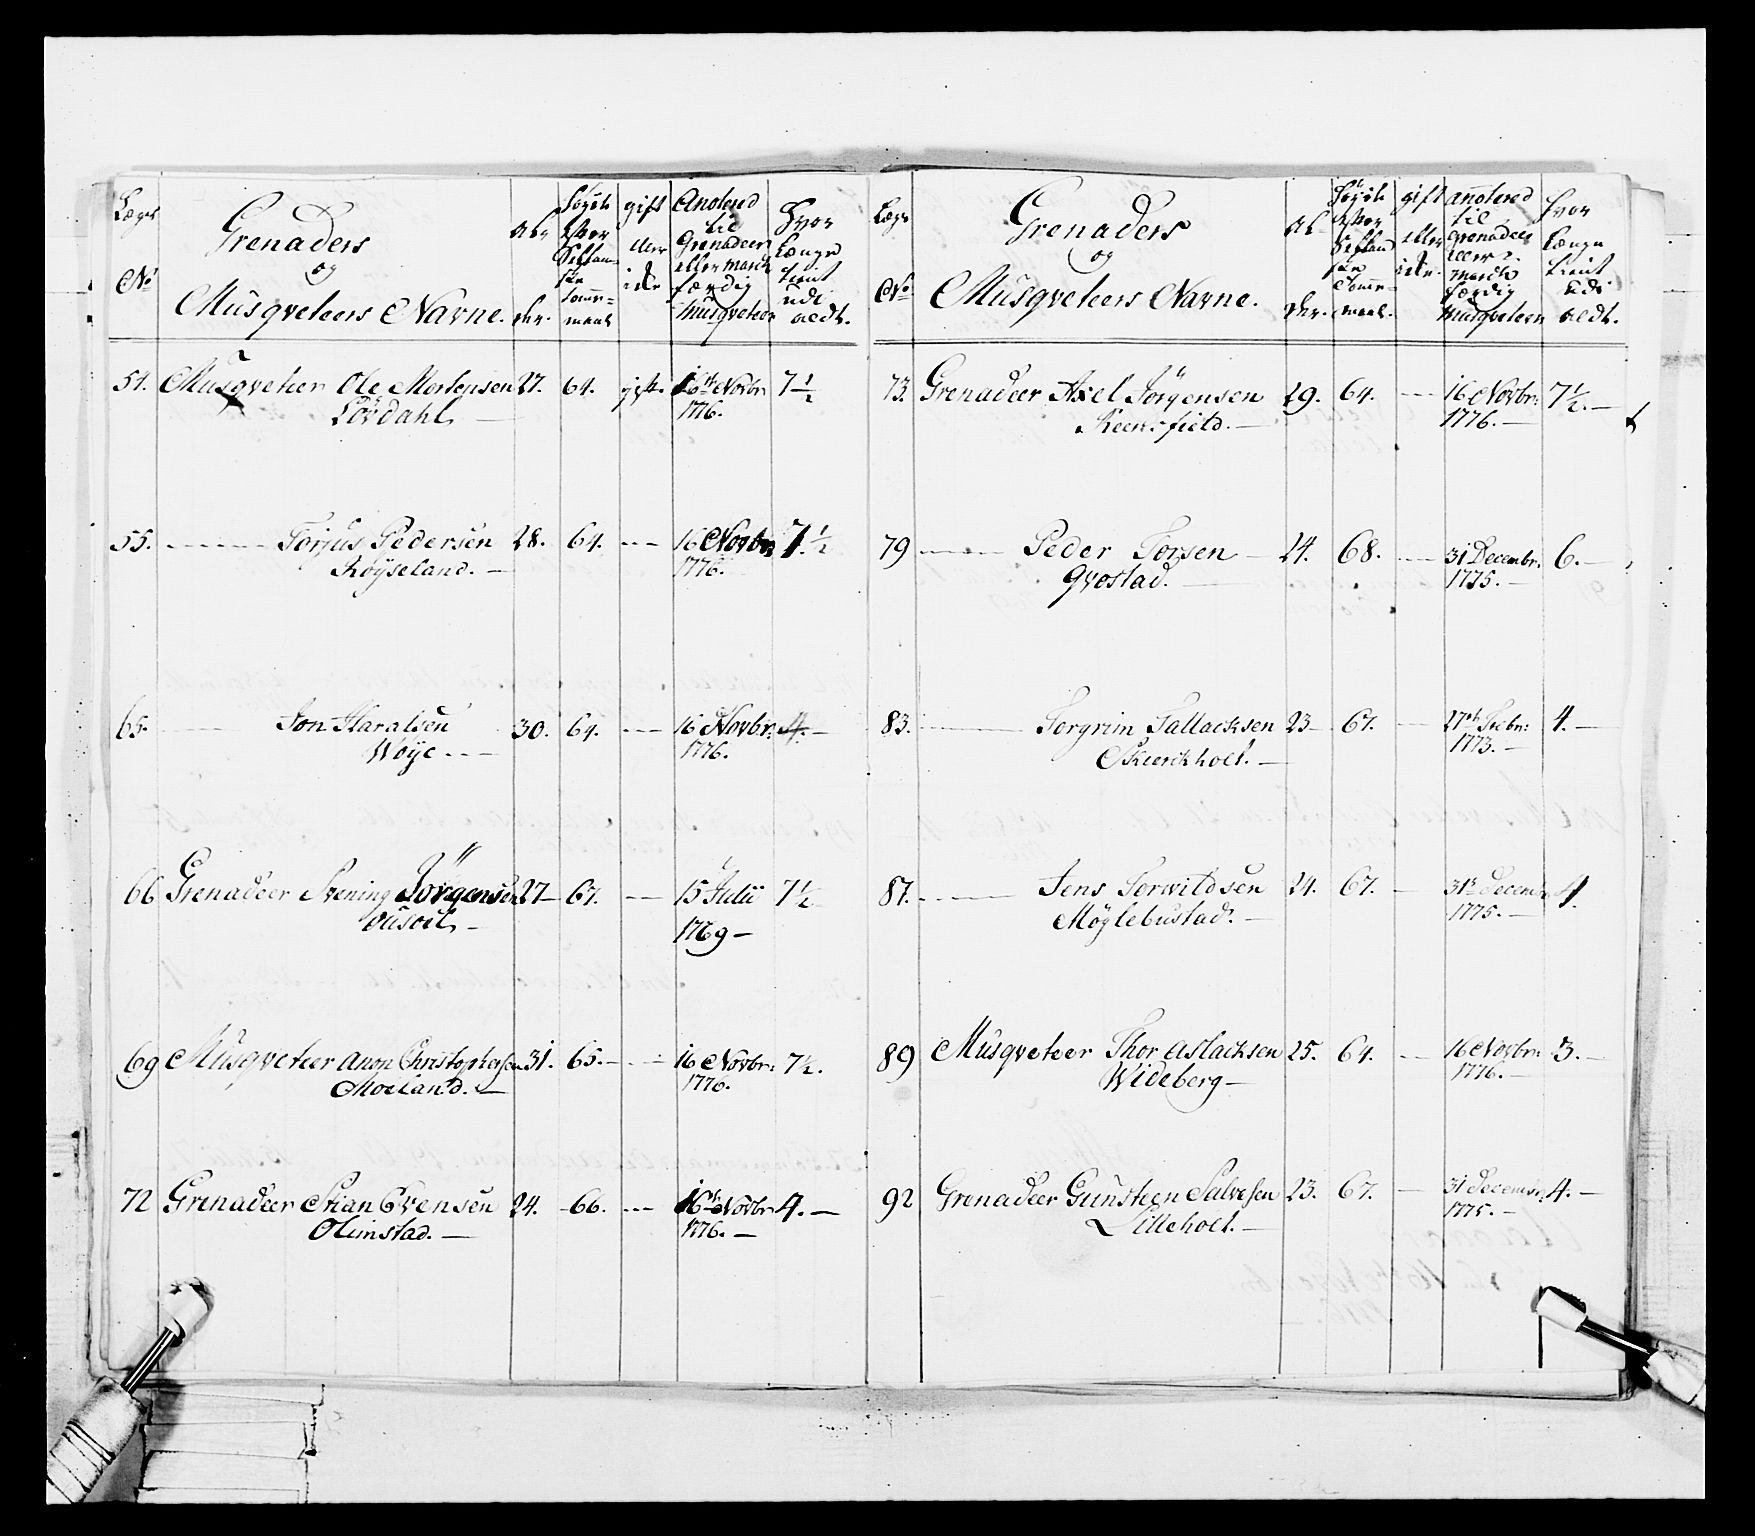 Lægs No
Grenaders
og
Musqveteers Navne.
Al-
der.
Høyde
efter
Sellan-
ske
Tomme-
maal
gift
eller
ikke
Anoterd
til
Grenadeer
eller March
færdig
Musqveteer
Hvor
Længe
tient
udi
aldt.
54. Musqveteer Ole Mortensen 27. 64. gift. 16de Novbr: 7 1/2
Lövdahl 1776.
55. Torjus Pedersen 28. 64. 16 Novbr: 7 1/2
Röyseland. 1776.
65. Jon Haralsen 30. 64. 16 Novbr: 4.
Woye 1776.
66 Grenadeer Svening Jörgensen 27 67. 15 Julii 7 1/2
1769
69 Musqveteer Anon Christophersen 31. 65. 16 Novbr: 7 1/2.
Moeland. 1776.
72 Grenadeer Stian Evensen 24. 66. 16de Novbr 4.
Olimstad. 1776.
Lægs No
Grenaders
og
Musqveteers Navne.
Al-
der.
Høyde
efter
Selland
ske
Tomme-
maal.
gift
eller
ikke.
anoterd
til
Grenadeer
eller
March
færdig
Musqveteer
Hvor
Længe
tient
udi
aldt.
73. Grenadeer Axel Jörgensen 29. 64. 16 Novbr: 7 1/2.
1776.
79 Peder Torsen 24. 68. 31 Decembr: 6.
Qvostad. 1775.
83. Torgrim Tallacksen 23 67. 27de Febr: 4.
1773.
87. Jens Torwildsen 24. 67. 31te Decembr 4.
Möglebustad. 1775.
89 Musqveteer Thor Aslacksen 25. 64. 16 Novbr: 3.
Wideberg 1776.
92 Grenadeer Gunsteen Salvesen 23. 67. 31 Decembr. 4.
Lilleholt. 1775.